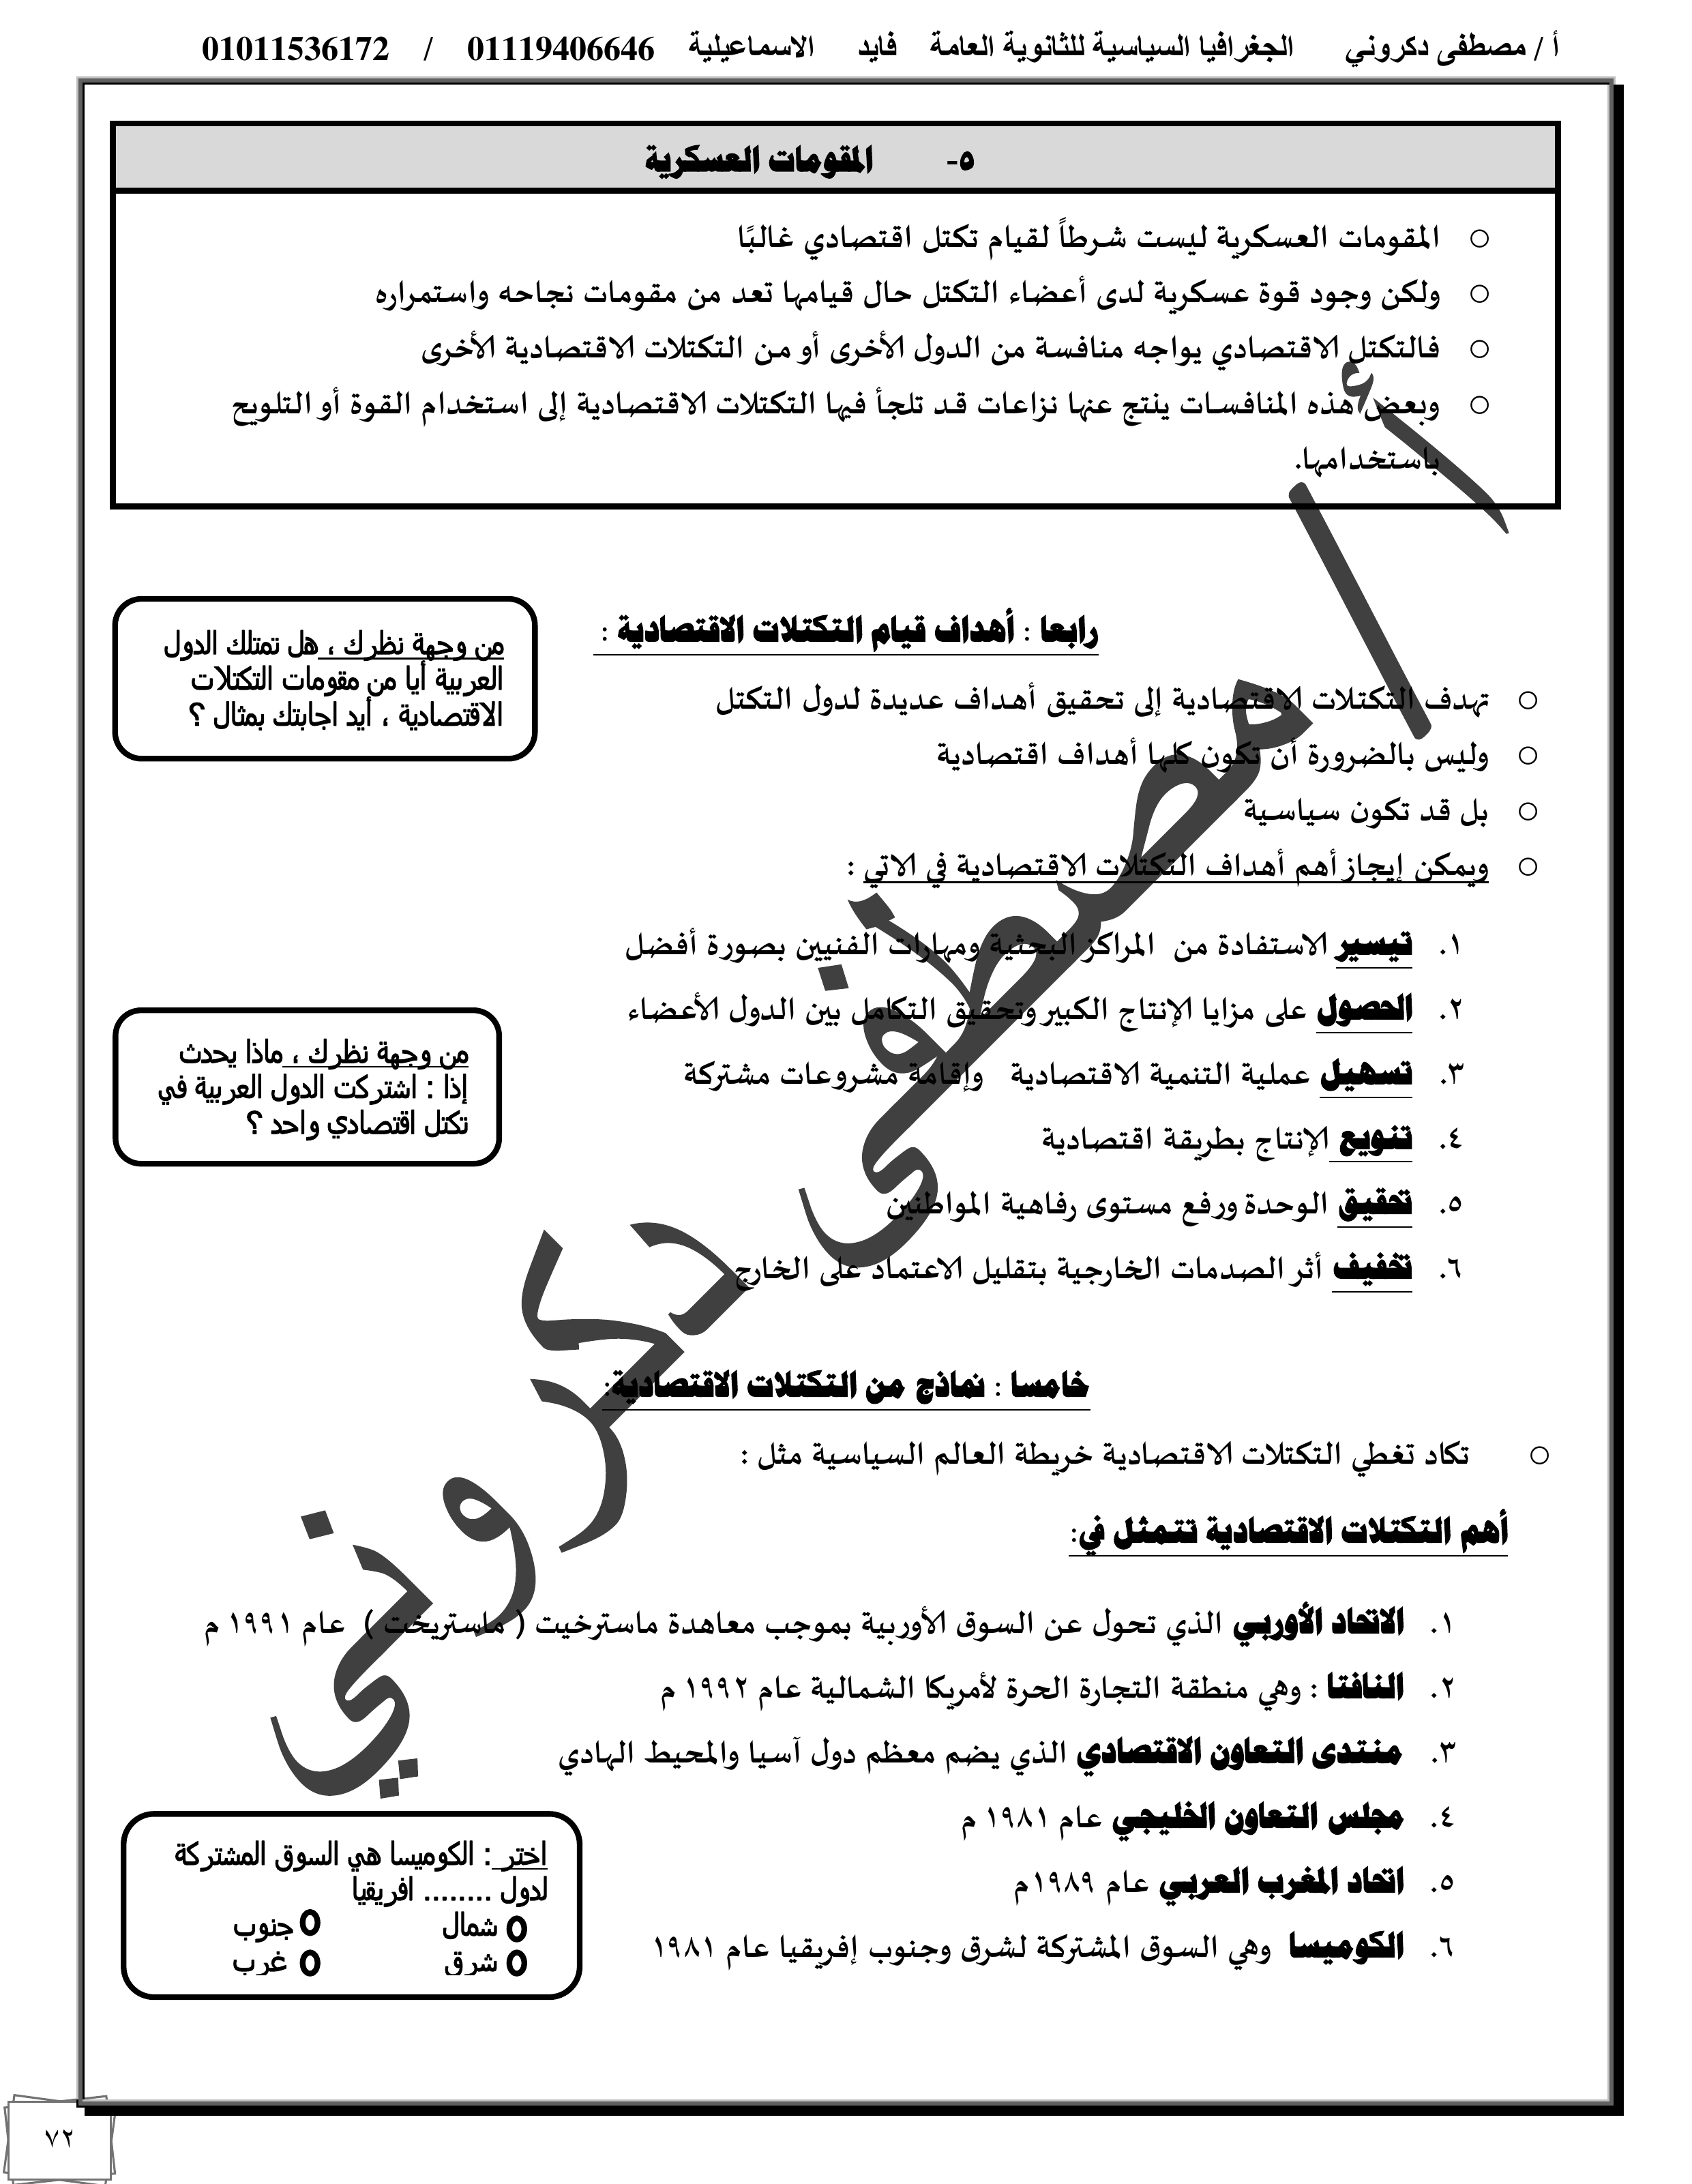 أ / مصطفى دكروني الجغرافيا السياسية للثانوية العامة فايد الاسماعيلية 01119406646 / 01011536172
٥- المقومات العسكرية
○ المقومات العسكرية ليست شرطاً لقيام تكتل اقتصادي غالبًا
○ ولكن وجود قوة عسكرية لدى أعضاء التكتل حال قيامها تعد من مقومات نجاحه واستمراره
○ فالتكتل الاقتصادي يواجه منافسة من الدول الأخرى أو من التكتلات الاقتصادية الأخرى
○ وبعض هذه المنافسات ينتج عنها نزاعات قد تلجأ فيها التكتلات الاقتصادية إلى استخدام القوة أو التلويح
باستخدامها.
رابعا : أهداف قيام التكتلات الاقتصادية :
من وجهة نظرك ، هل تمتلك الدول
العربية أيا من مقومات التكتلات
الاقتصادية ، أيد اجابتك بمثال ؟
○ تهدف التكتلات الاقتصادية إلى تحقيق أهداف عديدة لدول التكتل
○ وليس بالضرورة أن تكون كلها أهداف اقتصادية
○ بل قد تكون سياسية
○ ويمكن إيجاز أهم أهداف التكتلات الاقتصادية في الاتي :
١. تيسير الاستفادة من المراكز البحثية ومهارات الفنيين بصورة أفضل
٢. الحصول على مزايا الإنتاج الكبير وتحقيق التكامل بين الدول الأعضاء
٣. تسهيل عملية التنمية الاقتصادية وإقامة مشروعات مشتركة
٤. تنويع الإنتاج بطريقة اقتصادية
٥. تحقيق الوحدة ورفع مستوى رفاهية المواطنين
٦. تخفيف أثر الصدمات الخارجية بتقليل الاعتماد على الخارج
من وجهة نظرك ، ماذا يحدث
إذا : اشتركت الدول العربية في
تكتل اقتصادي واحد ؟
خامسا : نماذج من التكتلات الاقتصادية:
○ تكاد تغطي التكتلات الاقتصادية خريطة العالم السياسية مثل :
أهم التكتلات الاقتصادية تتمثل في:
١. الاتحاد الأوربي الذي تحول عن السوق الأوربية بموجب معاهدة ماسترخيت ( ماستريخت ) عام ١٩٩١ م
٢. النافتا : وهي منطقة التجارة الحرة لأمريكا الشمالية عام ١٩٩٢ م
٣. منتدى التعاون الاقتصادي الذي يضم معظم دول آسيا والمحيط الهادي
٤. مجلس التعاون الخليجي عام ١٩٨١ م
٥. اتحاد المغرب العربي عام ١٩٨٩م
٦. الكوميسا وهي السوق المشتركة لشرق وجنوب إفريقيا عام ١٩٨١
اختر : الكوميسا هي السوق المشتركة
لدول ........ افريقيا
شمال جنوب
شرق غرب
أ / مصطفى دكروني
٧٢